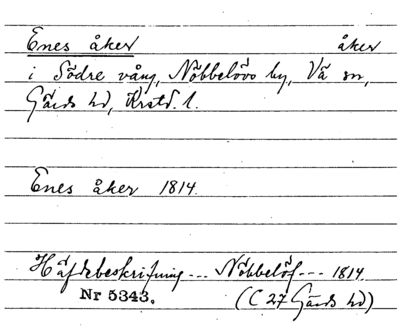 Enes åker åker
i Södre vång, Nöbbelövs by, Vä sn,
Gärds hd, Krstd. l.
Enes åker 1814.
Häfdebeskrifning --- Nöbbelöf --- 1814
Nr 5343. (C 27 Gärds hd)